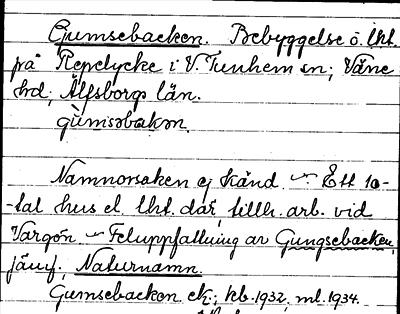 Gumsebacken. Bebyggelse o. lht.
på Repelycke i V. Tunhem sn; Väne
hd; Älfsborgs län.
gùmsəbakən.
Namnorsaken ej känd — Ett 10-
-tal hus el. lht. där, tillh. arb. vid
Vargön — Feluppfattning av Gungsebacken,
jämf. Naturnamn.
Gumsebacken ek; kb. 1932, ml. 1934.